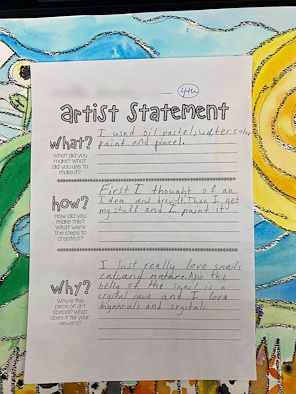 4th
artist Statement
what?
What did you
make? What
did you use to
make it?
I used oil pastel, watercolor
paint and
how?
How did you
make this?
What were
the steps to
create it?
First I thought of an
Idea and Then I get
my stuff and I paint it!
why?
Why is this
piece of art
special? What
does it tell your
viewers?
I just really love snails
and nature. Also the
belly of the snail is a
crystal cave and I love
and crystals.